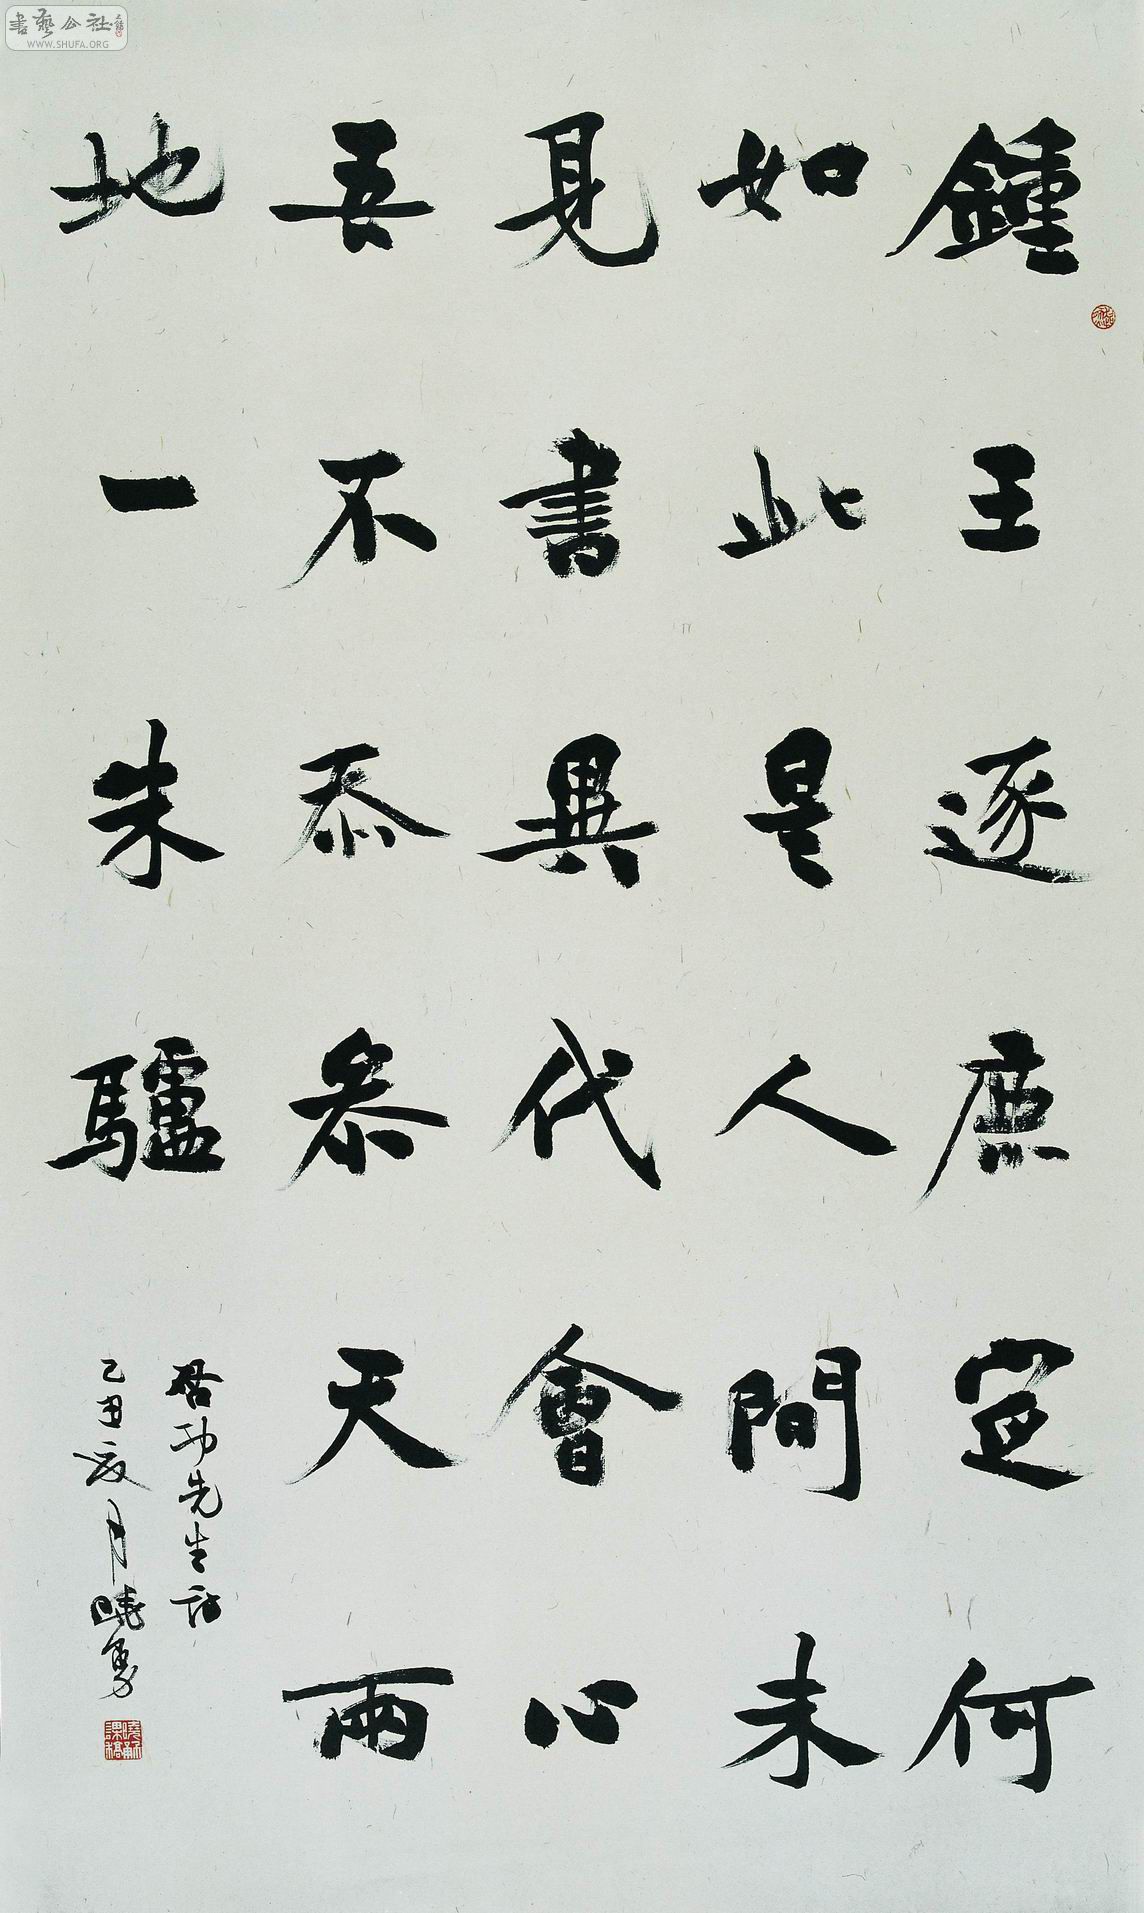 書藝公社
WWW.SHUFA.ORG
鍾王逐鹿定何
如此是人間未
見書異代會心
吾不忝參天兩
地一朱驢
啓功先生詩
己丑夏月曉勇
曉勇課稿